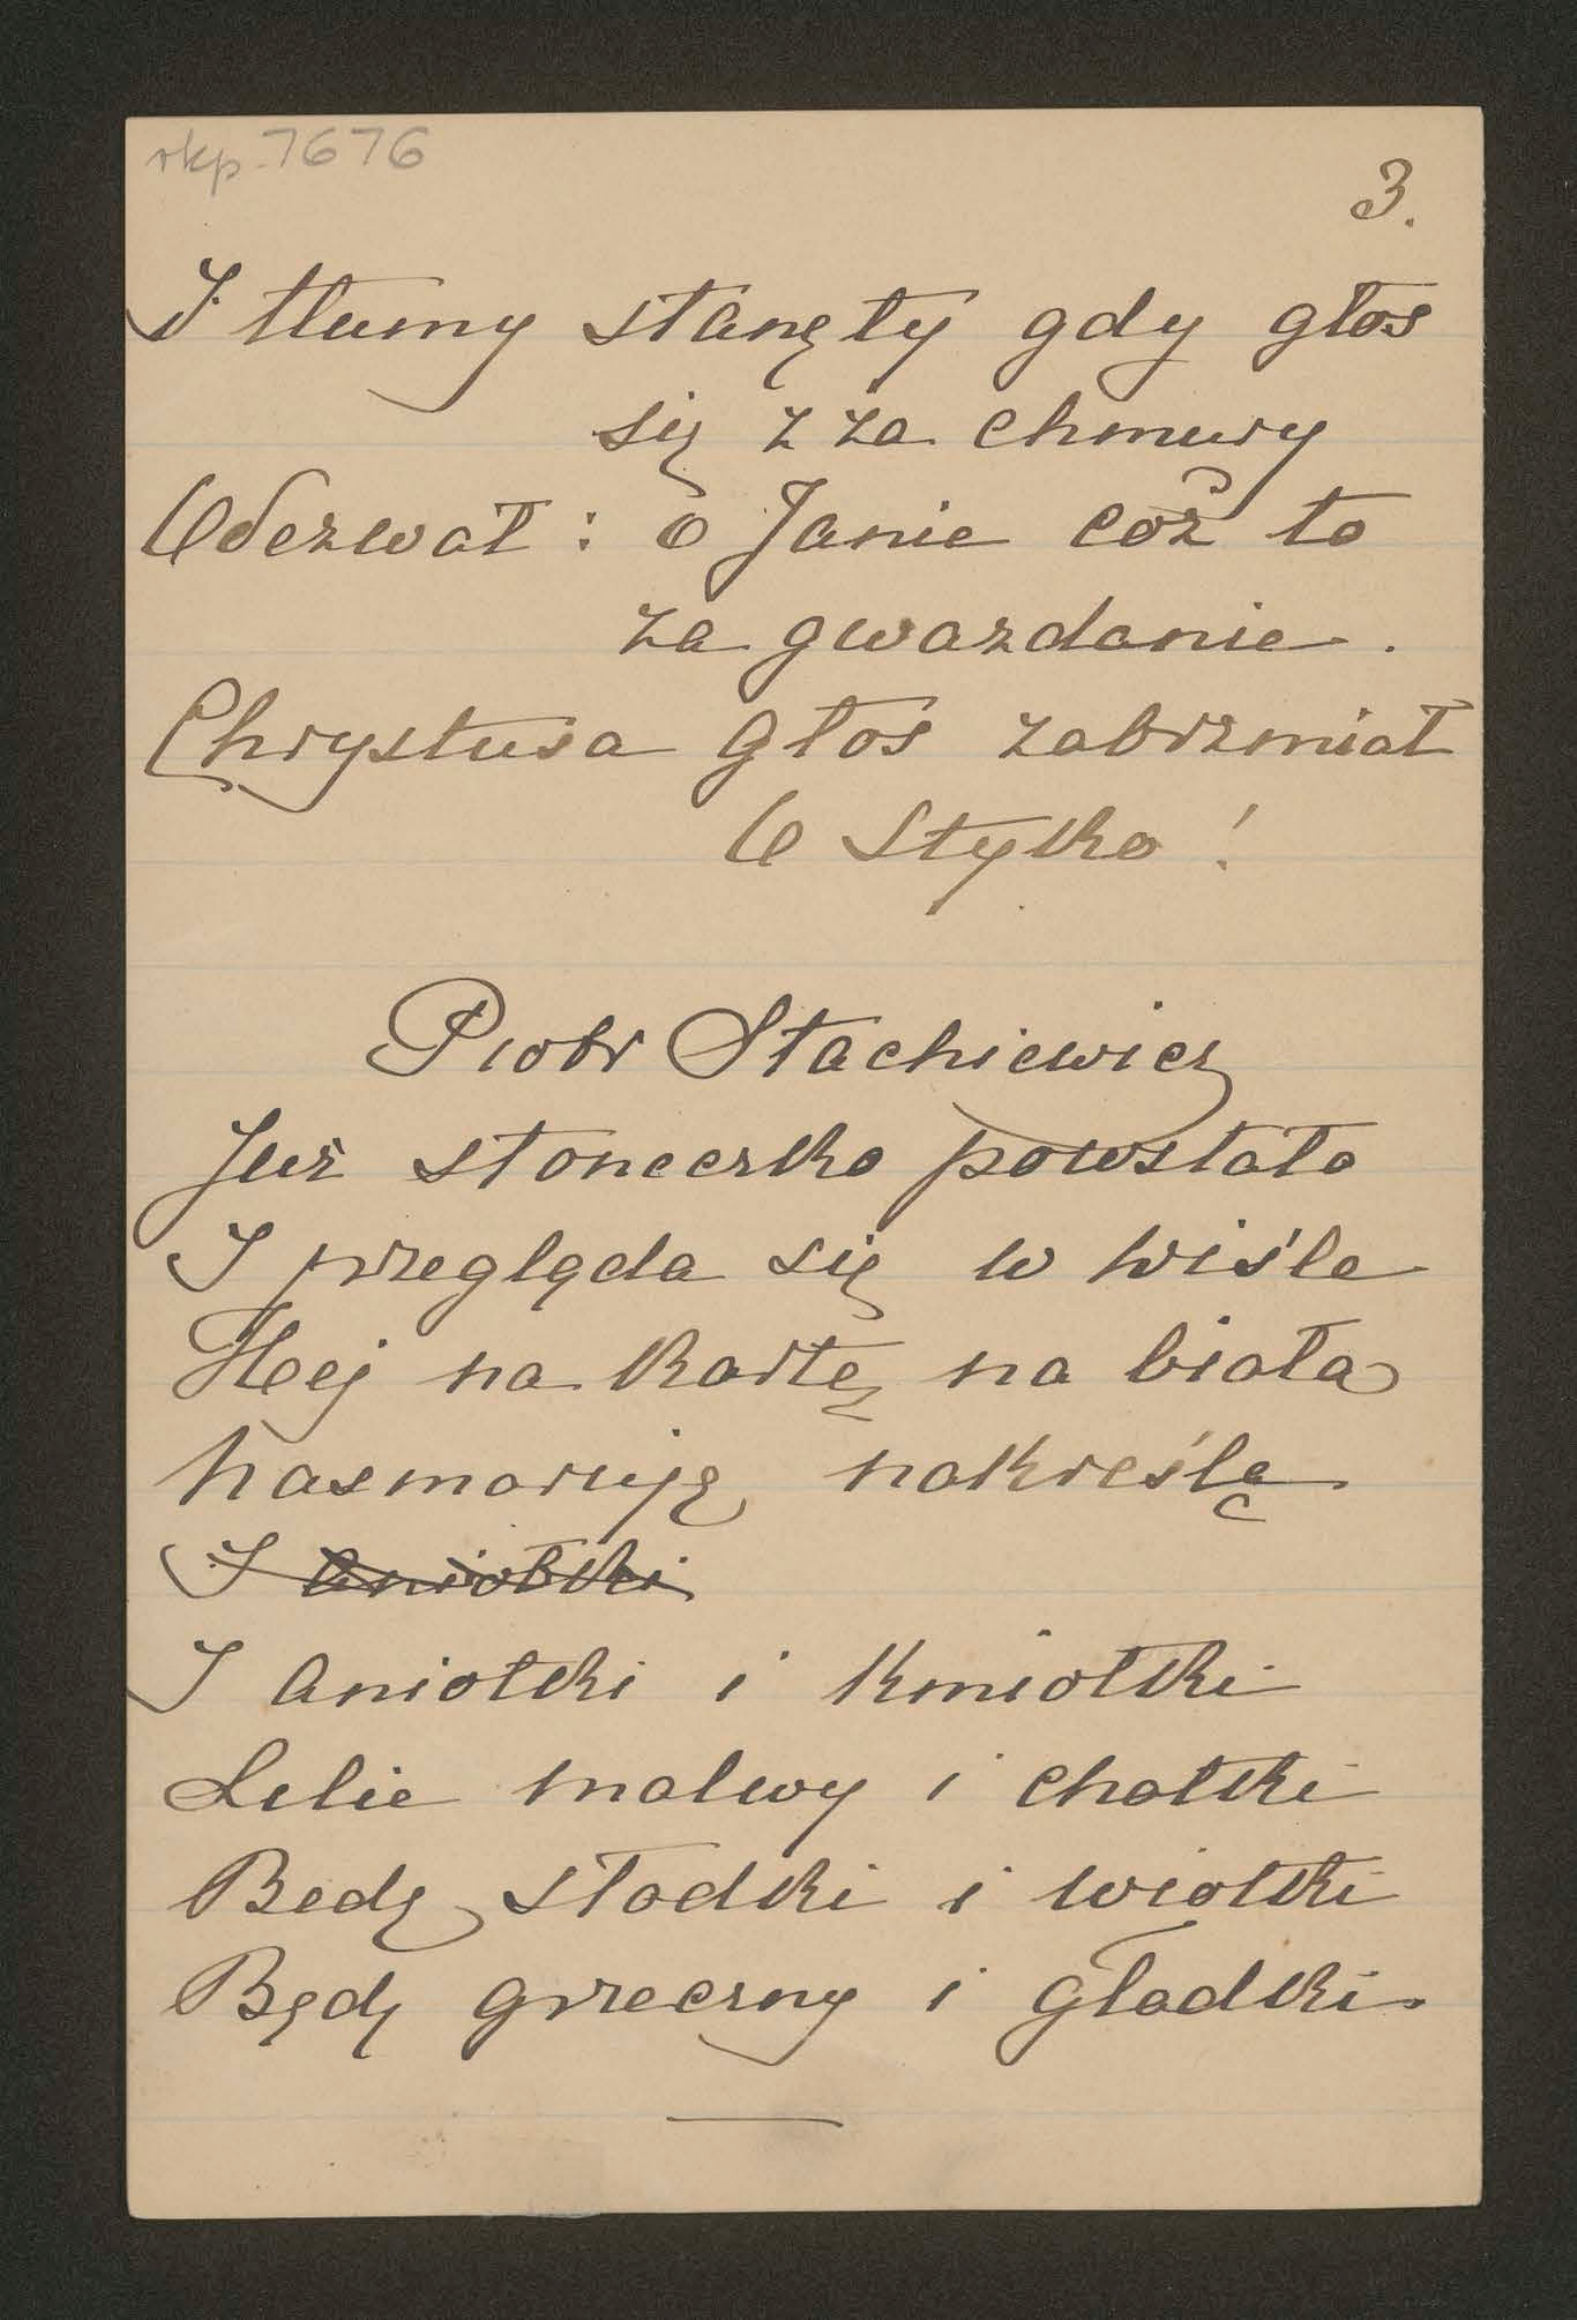 rkp. 7676
3.
I tłumy stanęły gdy głos
się z za chmury
Odezwał : o Janie cóż to
za gwazdanie .
Chrystusa głos zabrzmiał
O Styko !
Piotr Stachiewicz
Już słoneczko powstało
I przegląda się w wiśle
Hej na kartę na białą
Nasmaruję nakreślę
I aniołki
I aniołki i kmiotki
Lilie malwy i chatki
Będę słodki i wiotki
Będę grzeczny i gładki.